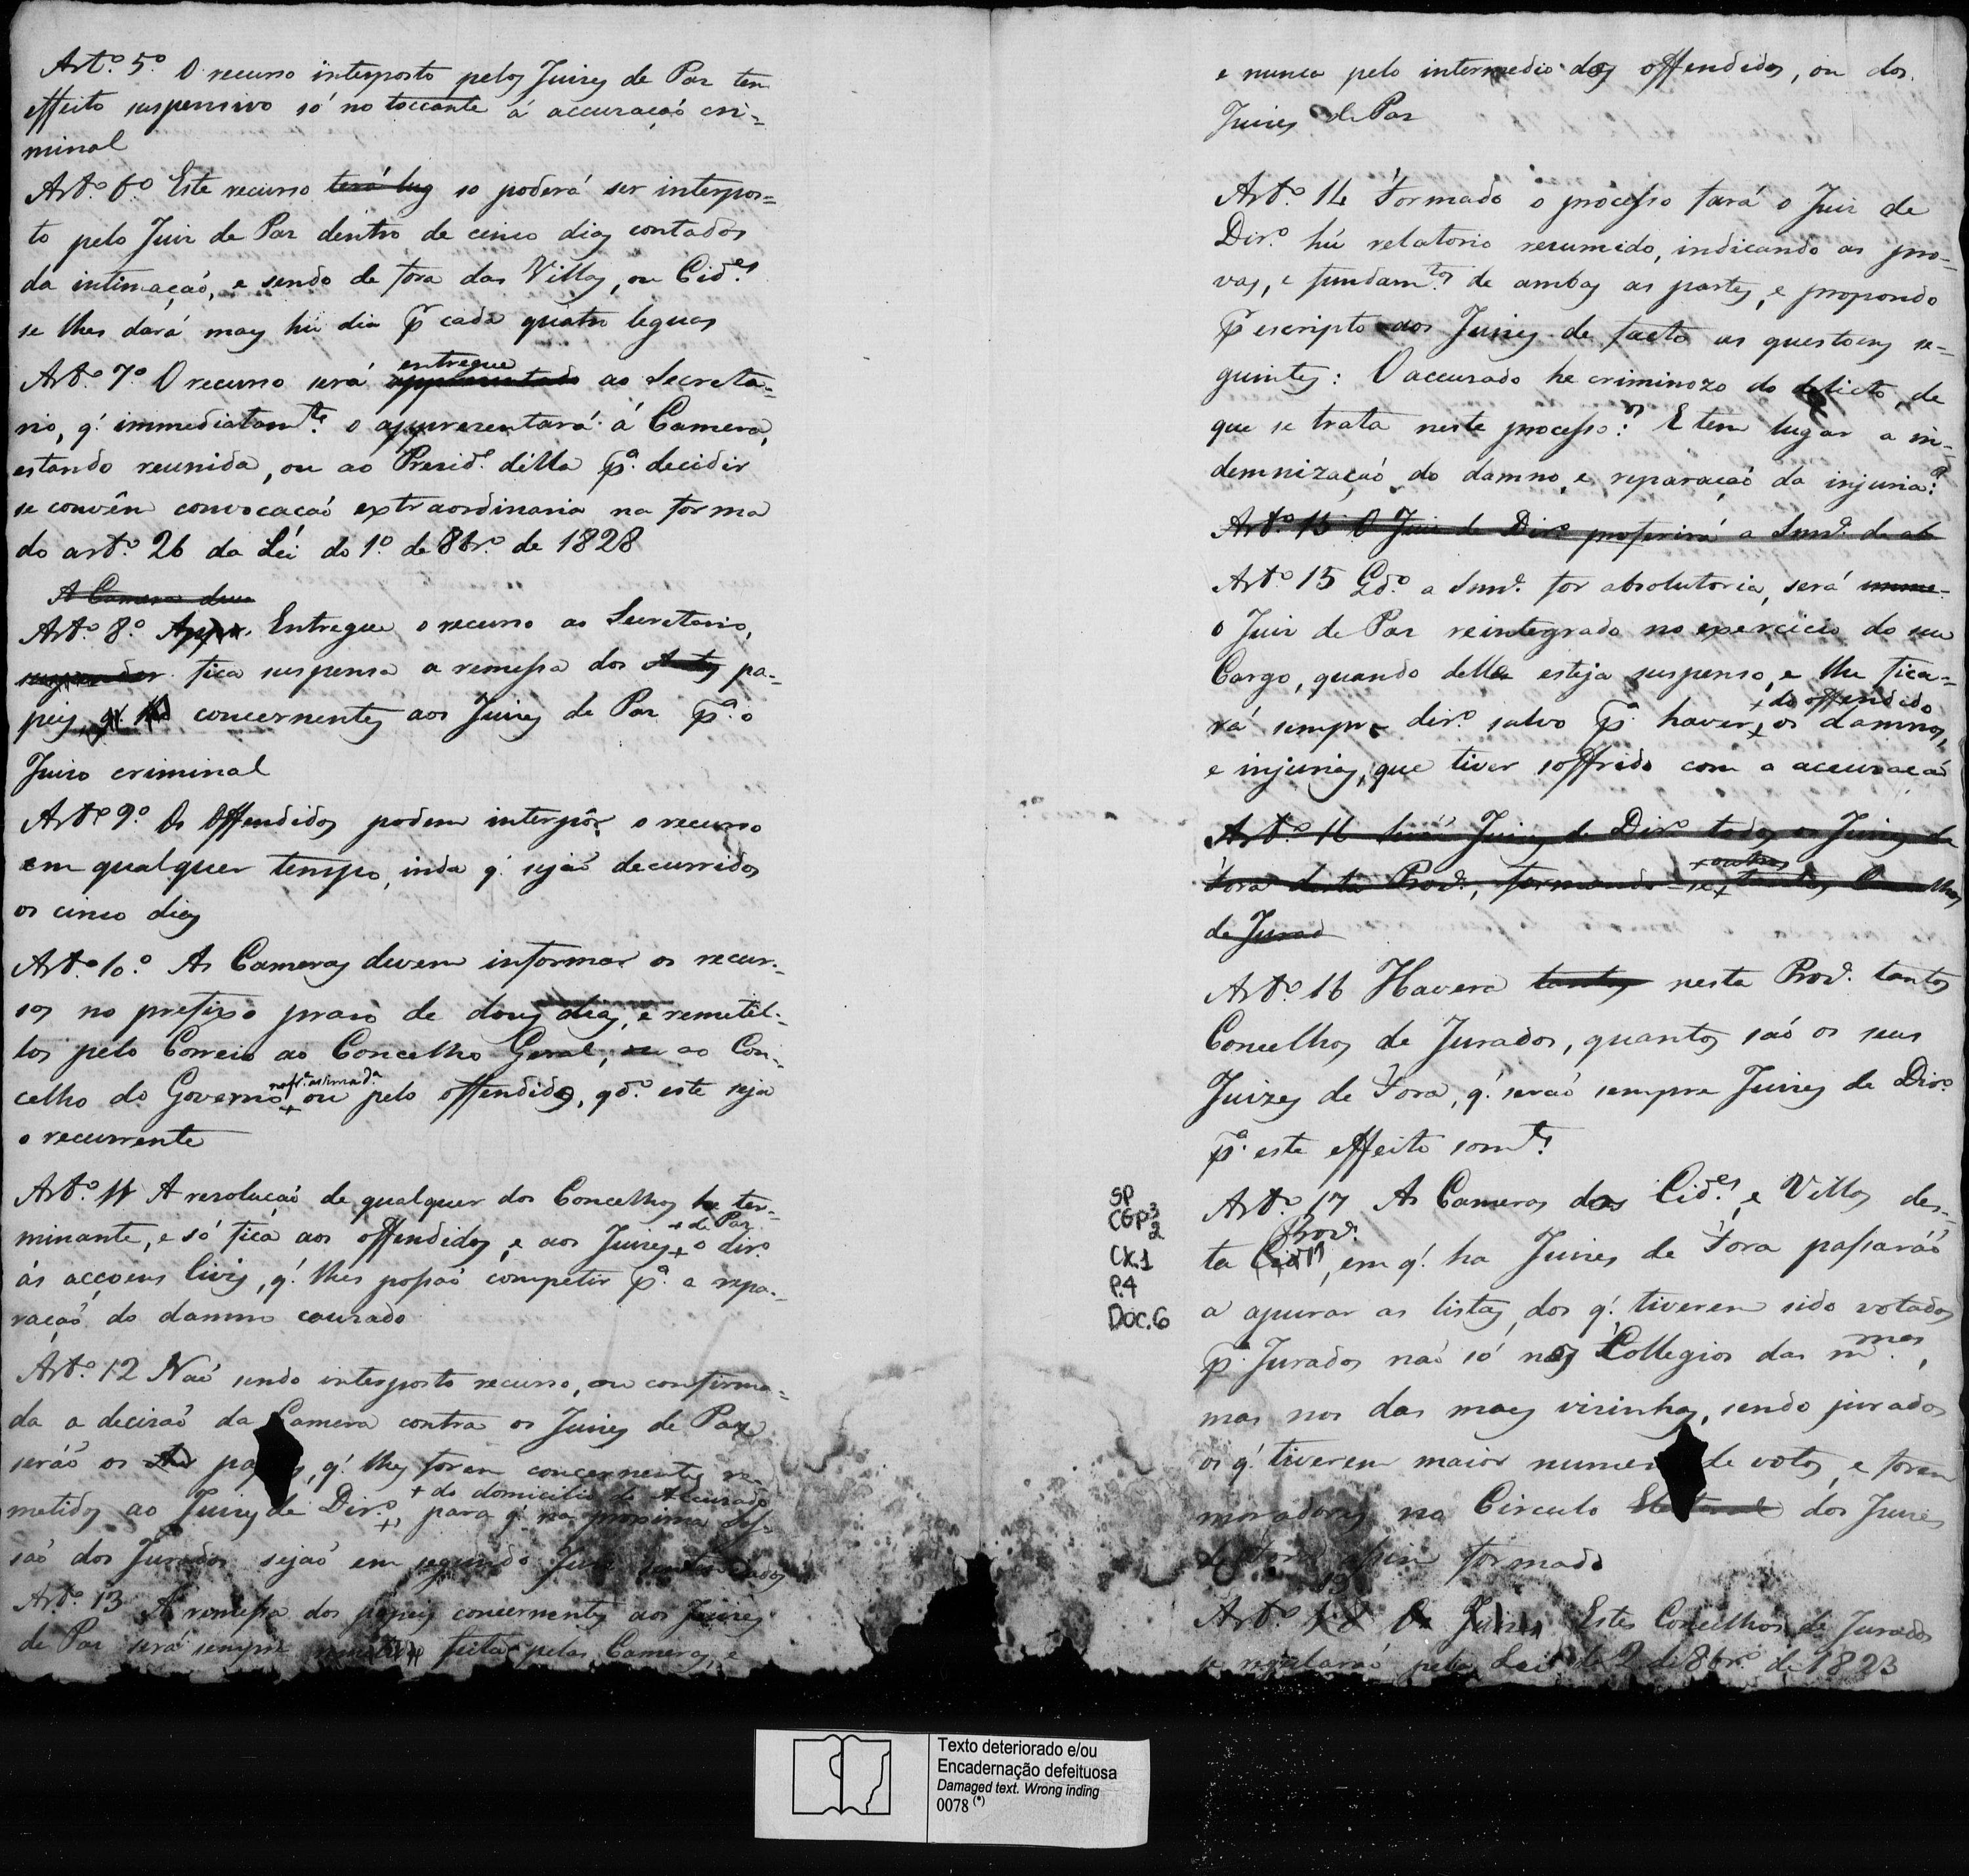 Artº. 5º O recurso interposto pelos Juizes de Paz tem
effeito suspensivo só no toccante á accuzaçaõ cri-
minal
Artº. 6º Este recurso terá lug so poderá ser interpos=
to pelo Juiz de Paz dentro de cinco dias contados
da intimaçaõ, e sendo de fora das Villas, ou Cidᵉˢ.
se lhes dará mais hũ dia p̃ cada quatro leguas
entregue
Artº. 7º O recurso será appresentado ao Secreta=
rio, q̃ immediatamᵗᵉ. o apprezentará á Camera,
estando reunida, ou ao Presidᵉ. della p̃ᵃ. decidir
se convên convocaçaõ extraordinaria na forma
do artº. 26 da Léi do 1º de 8brº. de 1828
A Camera deve
Artº. 8º Appr. Entregue o recurso ao Secretario,
suspender fica suspensa a remessa dos Autos pa-
peis, q̃ concernentes aos Juizes de Paz p̃ᵃ. o
Juizo criminal
Artº. 9º Os Offendidos podem interpôr o recurso
em qualquer tempo, inda q̃ sejaõ decurridos
os cinco dias
Artº. 10º. As Cameras devem informar os recur-
sos no prefixo prazo de dous dias, e remetel-
los pelo Correio ao Concelho Geral, ou ao Con-
celho do Governo + ou pelo offendido, qdº. este seja
o recurrente
Artº. 11 A resoluçaõ de qualquer dos Concelhos he ter-
+ de Paz
minante, e só fica aos offendidos, e aos Juizes + o dirº
ás acçoens Civis, q̃ lhes possaõ competir p̃ᵃ. a repa-
raçaõ do damno cauzado
Artº. 12 Naõ sendo interposto recurso, ou confirma=
da a decizaõ da Camera contra os Juizes de Paz
seráõ os pa s, q̃ lhes forem concernentes re-
+ do domicilio do Accuzado
metidos ao Juizes de Dirº. +, para q̃ na proxima Ses-
saõ dos Jurados sejaõ em segundo Juri
Artº. 13 A remessa dos papeis concernentes aos Juizes
de Paz será sempre feita pelas Cameras, e
e nunca pelo intermedio dos offendidos, ou dos
Juizes de Paz
Artº. 14 Formado o processo fará o Juiz de
Dirº. hũ relatorio rezumido, indicando as pro-
vas, e fundamᵗᵒˢ. de ambas as partes, e propondo
p̃ escripto aos Juizes de facto as questoens se-
guintes: O accusado he criminozo do delicto, de
que se trata neste processo? E tem lugar a in-
demnizaçaõ do damno, e reparaçaõ da injuria?
Artº. 15 O Juiz de Dirº. proferirá a Snnᶜᵃ. de ab
Artº. 15 Qdº. a Snnᶜᵃ. for absolutoria, será imme-
o Juiz de Paz reintegrado no exercicio do seu
Cargo, quando delle esteja suspenso, e lhe fica-
+ do offendido
rá sempre dirº. salvo p̃ᵃ. haver + os damnos,
e injurias, que tiver soffrido com a accuzaçaõ
Artº. 16 Juizes de Dirº. todos os Juizes de
+ outros
Fora desta Provᵃ., formando-se + tantos Concelhos
de Jurad
Artº. 16 Havera tantos nesta Provᵃ. tantos
Concelhos de Jurados, quantos saõ os seus
Juizes de Fora, q̃ seraõ sempre Juizes de Dirº
p̃ᵃ. este effeito somᵗᵉ.
SP
CGP3
2
CX.1
P.4
DOC.6
Artº. 17 As Cameras das Cidᵉˢ., e Villas des-
Provᵃ.
ta Cidᵉˢ, em q̃ ha Juizes de Fora passaráõ
a apurar as listas dos q̃ tiverem sido votados
p̃ᵃ. Jurados naõ só nos Collegios das mᵐᵃˢ.,
mas nos das mais vizinhas, sendo jurados
os q̃ tiverem maior numero de votos, e forem
moradores no Circulo Eleitoral dos Juizes
de Fora assim formado
Artº. 18 Os Juizes Estes Concelhos de Jurados
se regularaõ pela Lei de 2 de 8brº. de 1823
Texto deteriorado e/ou
Encadernação defeituosa
Damaged text. Wrong inding
0078 (*)